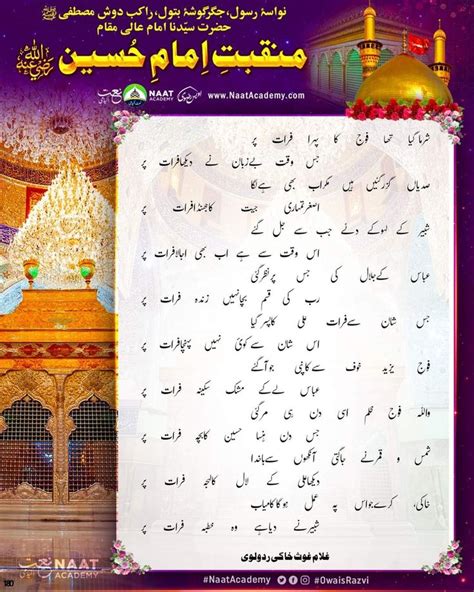 نواسۂ رسول، جگر گوشۂ بتول، راکب دوش مصطفی ﷺ
حضرت سیّدنا امام عالی مقام
منقبتِ اِمامِ حُسین رضی اللہ عنہ
NAAT ACADEMY
www.NaatAcademy.com
شرما گیا تھا فوج کا پہرا فرات پر
جس وقت بے زبان نے دیکھا فرات پر
صدیاں گزر گئیں ہیں مگر اب بھی ہے لگا
اصغر تمہاری جیت کا جھنڈا فرات پر
شبیر کے لہو کے دئے جب سے جل گئے
اس وقت سے ہے اب بھی اجالا فرات پر
عباس کے جلال کی جس پر نظر گئی
رب کی قسم بچا نہیں زندہ فرات پر
جس شان سے فرات علی کا پسر گیا
اس شان سے کوئی نہیں پہنچا فرات پر
فوج یزید خوف سے کانپی جو آ گئے
عباس لے کے مشک سکینہ فرات پر
واللہ فوج ظلم اسی دن ہی مر گئی
جس دن ہنسا حسین کا بچہ فرات پر
شمس و قمر نے جاگتی آنکھوں سے باخدا
دیکھا علی کے لال کا لہجہ فرات پر
خاکی، کرے جو اس پہ عمل ہو گا کامیاب
شبیر نے دیا ہے وہ خطبہ فرات پر
غلام غوث خاکی ردولوی
NAAT ACADEMY
#NaatAcademy
#OwaisRazvi
180